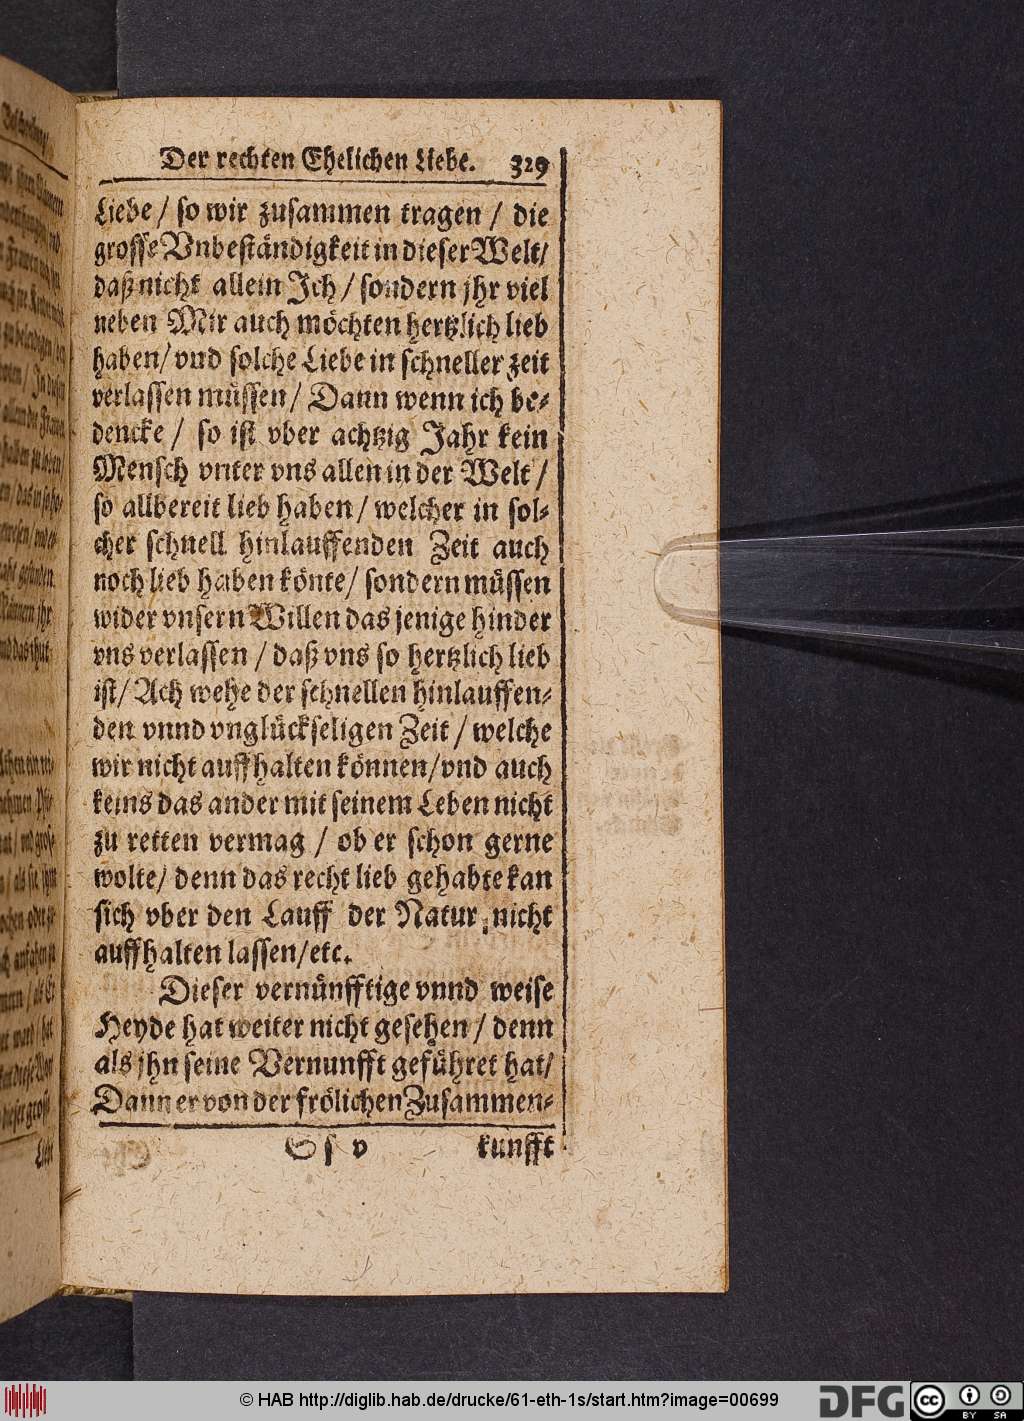 Der rechten Ehelichen Liebe. 329
Liebe / so wir zusammen tragen / die
grosse Vnbeständigkeit in dieser Welt/
daß nicht allein Ich / sondern jhr viel
neben Mir auch möchten hertzlich lieb
haben/ vnd solche Liebe in schneller zeit
verlassen müssen / Dann wenn ich be-
dencke / so ist vber achtzig Jahr kein
Mensch vnter vns allen in der Welt /
so allbereit lieb haben / welcher in sol-
cher schnell hinlauffenden Zeit auch
noch lieb haben könte/ sondern müssen
wider vnsern Willen das jenige hinder
vns verlassen / daß vns so hertzlich lieb
ist/ Ach wehe der schnellen hinlauffen-
den vnnd vnglückseligen Zeit / welche
wir nicht auffhalten können/vnd auch
keins das ander mit seinem Leben nicht
zu retten vermag / ob er schon gerne
wolte/ denn das recht lieb gehabte kan
sich vber den Lauff der Natur nicht
auffhalten lassen/etc.
Dieser vernünfftige vnnd weise
Heyde hat weiter nicht gesehen / denn
als jhn seine Vernunfft geführet hat/
Dann er von der frölichen Zusammen-
S s v kunfft
© HAB http://diglib.hab.de/drucke/61-eth-1s/start.htm?image=00699
DFG
cc BY SA